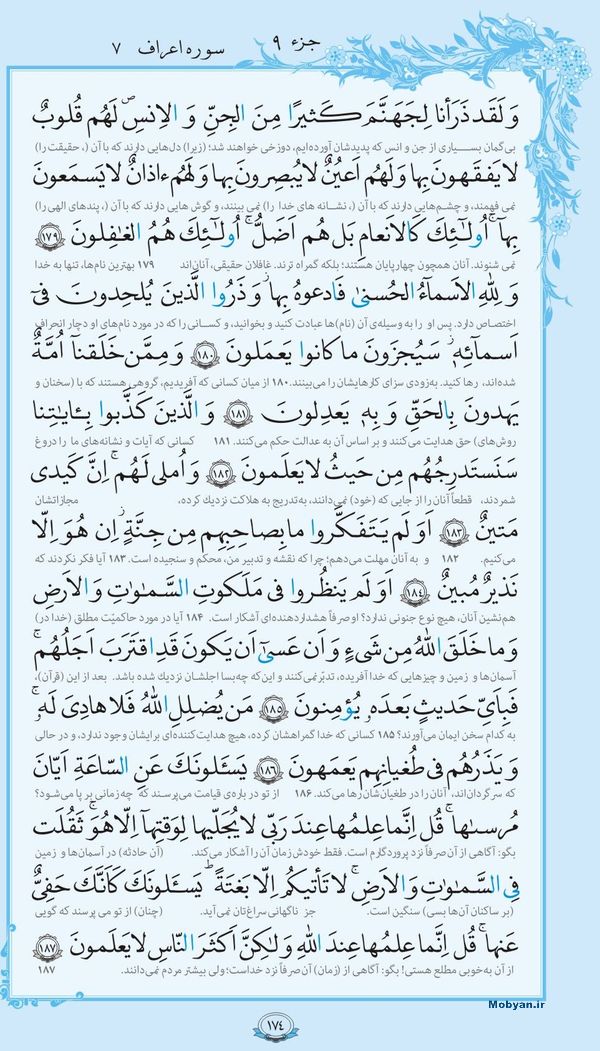 جزء ۹
سوره اعراف ۷
وَ لَقَد ذَرَأنا لِجَهَنَّمَ كَثيرًا مِنَ الجِنِّ وَ الاِنسِ ۖ لَهُم قُلوبٌ
بی‌گمان بسیاری از جن و انس که پدیدشان آورده‌ایم، دوزخی خواهند شد؛ (زیرا) دل‌هایی دارند که با آن (، حقیقت را)
لا يَفقَهونَ بِها وَ لَهُم اَعيُنٌ لا يُبصِرونَ بِها وَ لَهُم ءاذانٌ لا يَسمَعونَ
نمی فهمند، و چشم‌هایی دارند که با آن (، نشانه های خدا را) نمی بینند، و گوش هایی دارند که با آن (، پندهای الهی را)
بِها ۚ اُولٰئِكَ كَالاَنعامِ بَل هُم اَضَلُّ ۚ اُولٰئِكَ هُمُ الغٰفِلونَ ۱۷۹
نمی شنوند. آنان همچون چهارپایان هستند؛ بلکه گمراه ترند. غافلان حقیقی، آنان‌اند ۱۷۹ بهترین نام‌ها، تنها به خدا
وَ لِلّٰهِ الاَسماءُ الحُسنىٰ فَادعوهُ بِها ۖ وَ ذَرُوا الَّذينَ يُلحِدونَ فى
اختصاص دارد. پس او را به وسیله‌ی آن (نام)ها عبادت کنید و بخوانید، و کسانی را که در مورد نام‌های او دچار انحراف
اَسمائِهِ ۚ سَيُجزَونَ ما كانوا يَعمَلونَ ۱۸۰ وَ مِمَّن خَلَقنا اُمَّةٌ
شده‌اند، رها کنید. به‌زودی سزای کارهایشان را می‌بینند. ۱۸۰ از میان کسانی که آفریدیم، گروهی هستند که با (سخنان و
يَهدونَ بِالحَقِّ وَ بِه يَعدِلونَ ۱۸۱ وَ الَّذينَ كَذَّبوا بِـٔايٰتِنا
روش‌های) حق هدایت می‌کنند و بر اساس آن به عدالت حکم می‌کنند. ۱۸۱ کسانی که آیات و نشانه‌های ما را دروغ
سَنَستَدرِجُهُم مِن حَيثُ لا يَعلَمونَ ۱۸۲ وَ اُملى لَهُم ۚ اِنَّ كَيدى
شمردند، قطعاً آنان را از جایی که (خود) نمی‌دانند، به‌تدریج به هلاکت نزدیك کرده، مجازاتشان
مَتينٌ ۱۸۳ اَوَ لَم يَتَفَكَّروا ۗ ما بِصاحِبِهِم مِن جِنَّةٍ ۚ اِن هُوَ اِلّا
می‌کنیم. ۱۸۲ و به آنان مهلت می‌دهم؛ چرا که نقشه و تدبیر من، محکم و سنجیده است. ۱۸۳ آیا فکر نکردند که
نَذيرٌ مُبينٌ ۱۸۴ اَوَ لَم يَنظُروا فى مَلَكوتِ السَّمٰوٰتِ وَ الاَرضِ
هم‌نشین آنان، هیچ نوع جنونی ندارد؟ او صرفاً هشداردهنده‌ای آشکار است. ۱۸۴ آیا در مورد حاکمیّت مطلق (خدا در)
وَ ما خَلَقَ اللّٰهُ مِن شَىءٍ وَ اَن عَسىٰ اَن يَكونَ قَدِ اقتَرَبَ اَجَلُهُم ۖ
آسمان‌ها و زمین و چیزهایی که خدا آفریده، تدبّر نمی‌کنند و این‌که چه‌بسا اجلشان نزدیك شده باشد. بعد از این (قرآن)،
فَبِاَىِّ حَديثٍ بَعدَهُ يُؤمِنونَ ۱۸۵ مَن يُضلِلِ اللّٰهُ فَلا هادِىَ لَهُ ۚ
به کدام سخن ایمان می‌آورند؟ ۱۸۵ کسانی که خدا گمراهشان کرده، هیچ هدایت‌کننده‌ای برایشان وجود ندارد، و در حالی
وَ يَذَرُهُم فى طُغيانِهِم يَعمَهونَ ۱۸۶ يَسـَٔلونَكَ عَنِ السّاعَةِ اَيّانَ
که سرگردان‌اند، آنان را در طغیان‌شان رها می‌کند. ۱۸۶ از تو در باره‌ی قیامت می‌پرسند که چه‌زمانی بر پا می‌شود؟
مُرسٰها ۖ قُل اِنَّما عِلمُها عِندَ رَبّى ۖ لا يُجَلّيها لِوَقتِها اِلّا هُوَ ۚ ثَقُلَت
بگو: آگاهی از آن صرفاً نزد پروردگارم است. فقط خودش زمان آن را آشکار می‌کند. (آن حادثه) در آسمان‌ها و زمین
فِى السَّمٰوٰتِ وَ الاَرضِ ۚ لا تَأتيكُم اِلّا بَغتَةً ۗ يَسـَٔلونَكَ كَاَنَّكَ حَفِىٌّ
(بر ساکنان آن‌ها بسی) سنگین است. جز ناگهانی سراغ‌تان نمی‌آید. (چنان) از تو می پرسند که گویی
عَنها ۖ قُل اِنَّما عِلمُها عِندَ اللّٰهِ وَ لٰكِنَّ اَكثَرَ النّاسِ لا يَعلَمونَ ۱۸۷
از آن به‌خوبی مطلع هستی! بگو: آگاهی از (زمان) آن صرفاً نزد خداست؛ ولی بیشتر مردم نمی‌دانند. ۱۸۷
Mobyan.ir
۱۷۴